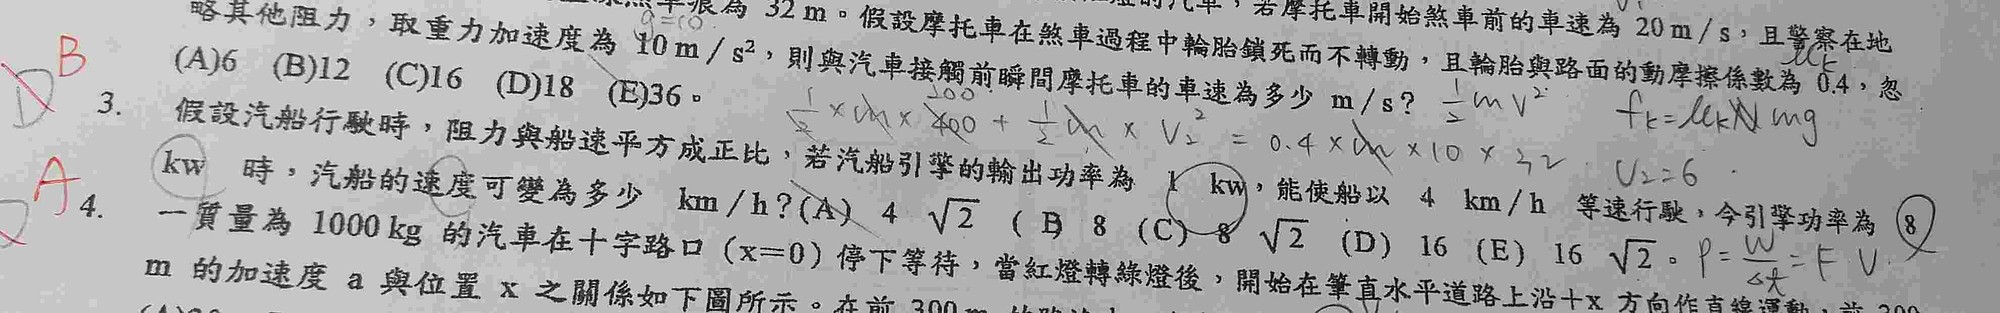 煞車痕為 32 m。假設摩托車在煞車過程中輪胎鎖死而不轉動，且輪胎與路面的動摩擦係數為 0.4，忽
的汽車，若摩托車開始煞車前的車速為 20 m / s，且警察在地
略其他阻力，取重力加速度為 10 m / s²，則與汽車接觸前瞬間摩托車的車速為多少 m / s?
a=10
μk
(A)6 (B)12 (C)16 (D)18 (E)36。
½mv²
fk=μkN mg
B
D
3. 假設汽船行駛時，阻力與船速平方成正比，若汽船引擎的輸出功率為 1 kw，能使船以 4 km / h 等速行駛，今引擎功率為 8
½×m×400 + ½m × V₂² = 0.4×m×10×32
V₂=6
kw 時，汽船的速度可變為多少 km / h？(A) 4 √2 (B) 8 (C) 8 √2 (D) 16 (E) 16 √2。
P=W/Δt=FV
A
4. 一質量為 1000 kg 的汽車在十字路口（x＝0）停下等待，當紅燈轉綠燈後，開始在筆直水平道路上沿＋x 方向作直線運動，前 300
m 的加速度 a 與位置 x 之關係如下圖所示。在前 300 m